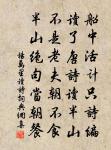 船中活計只詩編
讀了唐詩讀半山
不是老夫朝不食
半山絕句當朝餐
楊萬里讀詩詩詞典網書